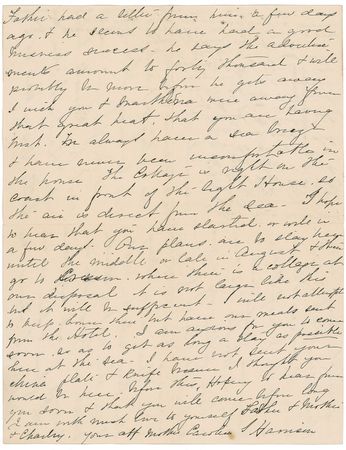 Father had a letter from him a few days
ago, & he seems to have had a good
business success. he says the advertise
ments amount to forty thousand & will
probably be more before he gets away
I wish you & were away from
that great heat that you are having
with. We always have a sea breeze
& have never been uncomfortable in
the house The Cottage is right on the
coast in front of the Light House, so
the air is direct from the sea- I hope
to hear that you have started or will in
a few days. Our plans are to stay here
until the middle or late in August & then
go to where there is a cottage at
our disposal it is not large like this
but it will be sufficient- I will not attempt
to keep house there but have our meals sent
from the Hotel. I am anxious for you to come
soon. so as to get as long a stay as possible
here at the sea- I have not sent your
china plate & I thought you
would be here When this, Hoping to hear from
you soon & that you will come before long
I am with much love to yourself Father & Mother
& Charley. Your aff Mother Caroline S Harrison